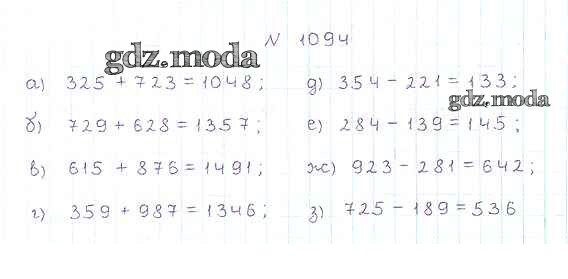 N 1094
gdz.moda
а) 325 + 723 = 1048;
б) 729 + 628 = 1357;
в) 615 + 876 = 1491;
г) 359 + 987 = 1346;
д) 354 - 221 = 133;
gdz.moda
е) 284 - 139 = 145;
ж) 923 - 281 = 642;
з) 725 - 189 = 536